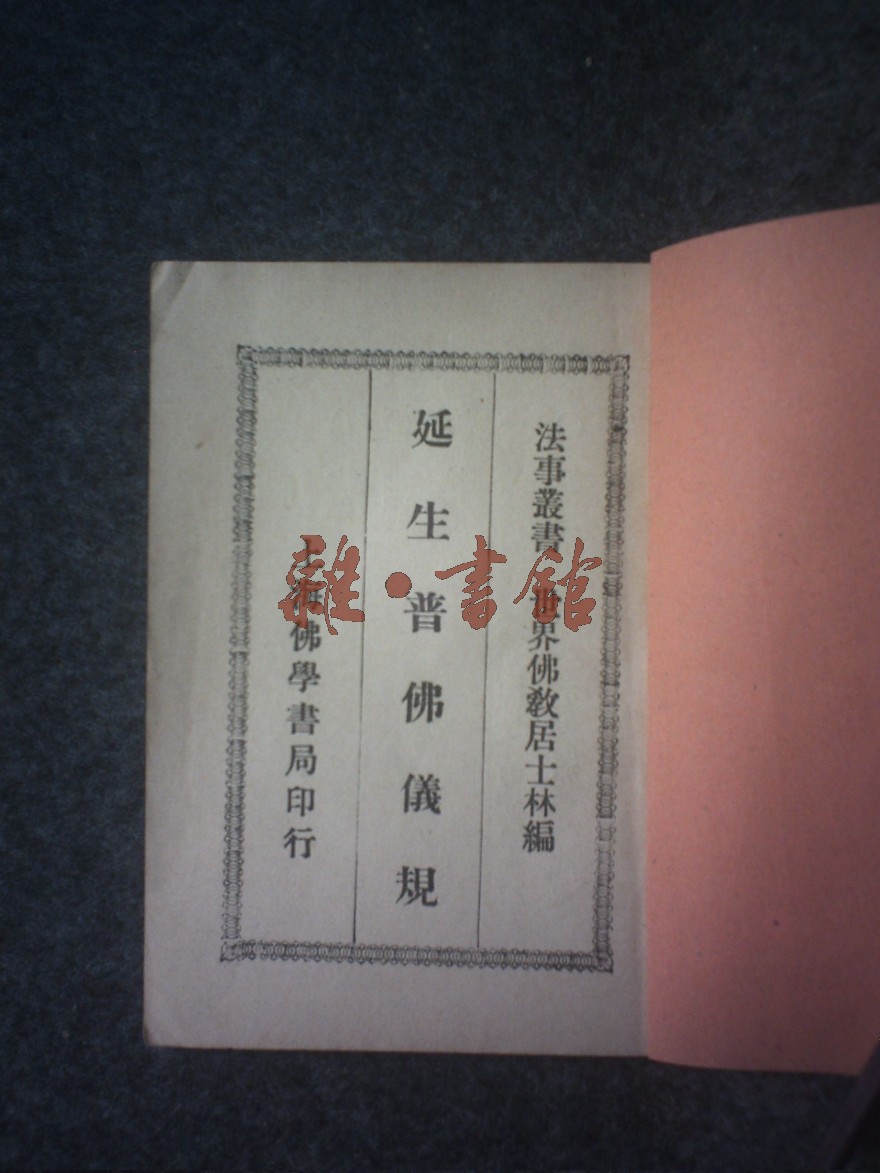 法事叢書 世界佛教居士林編
延生普佛儀規
上海佛學書局印行
雜·書館